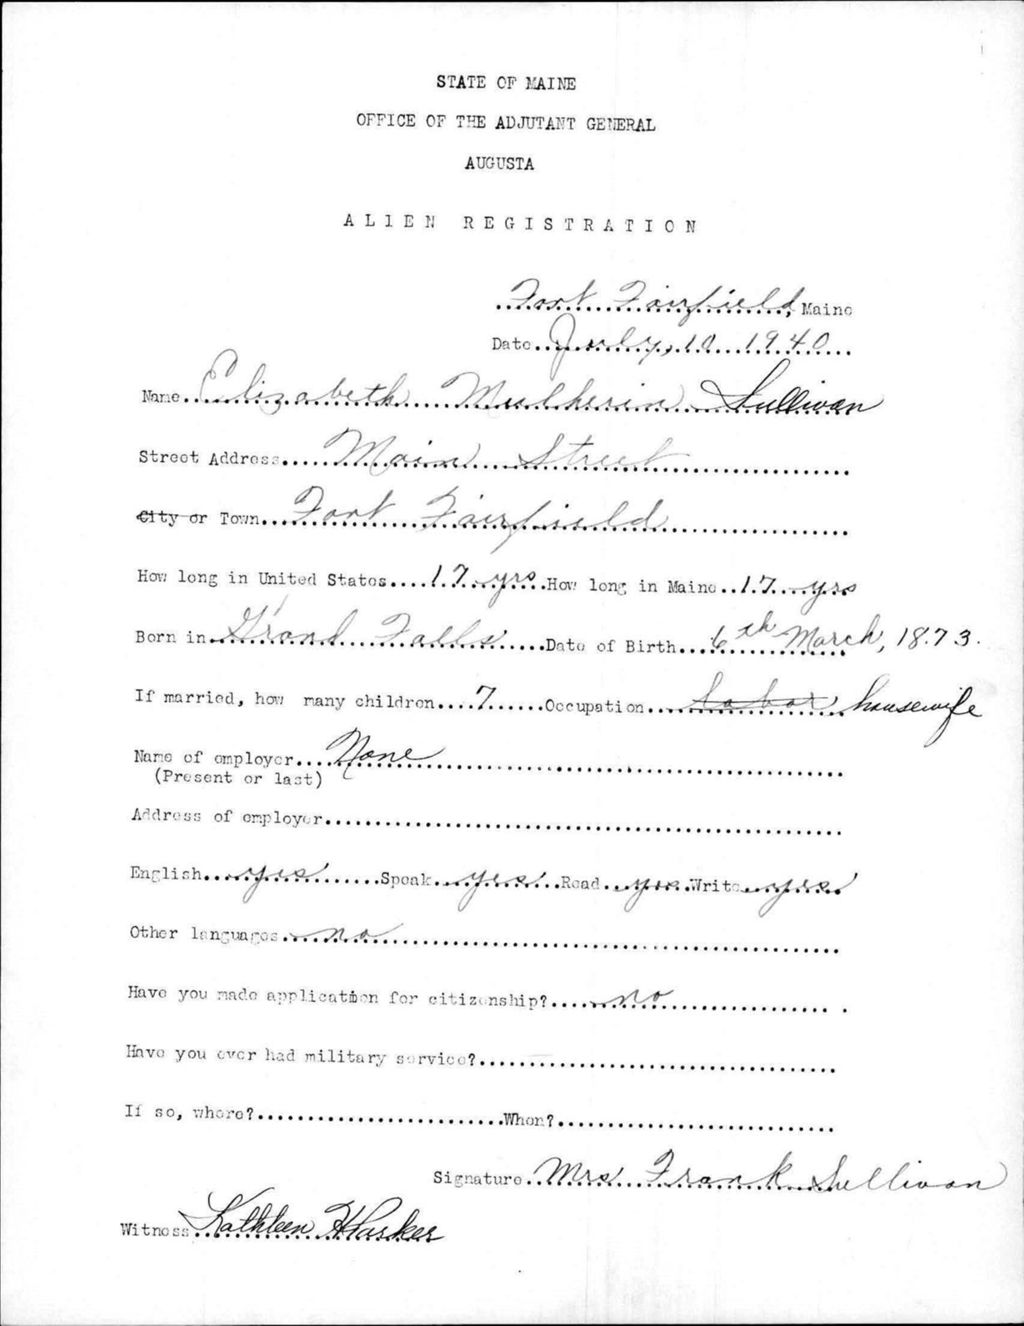 STATE OF MAINE
OFFICE OF THE ADJUTANT GENERAL
AUGUSTA
AL1EN REGISTRATION
Fort Fairfield, Maine
Date July, 10 1940
Name Elizabeth Mulherin Sullivan
Street Address Main Street
City or Town Fort Fairfield
How long in United States 17 yrs How long in Maine 17 yrs
Born in Grand Falls Date of Birth 6th March, 1873.
If married, how many children 7 Occupation Labor housewife
Name of employer None
(Present or last)
Address of employer
English yes Speak yes Read yes Write yes
Other languages no
Have you made application for citizenship? no
Have you ever had military service?
If so, where? When?
Signature Mrs Frank Sullivan
Witness Kathleen